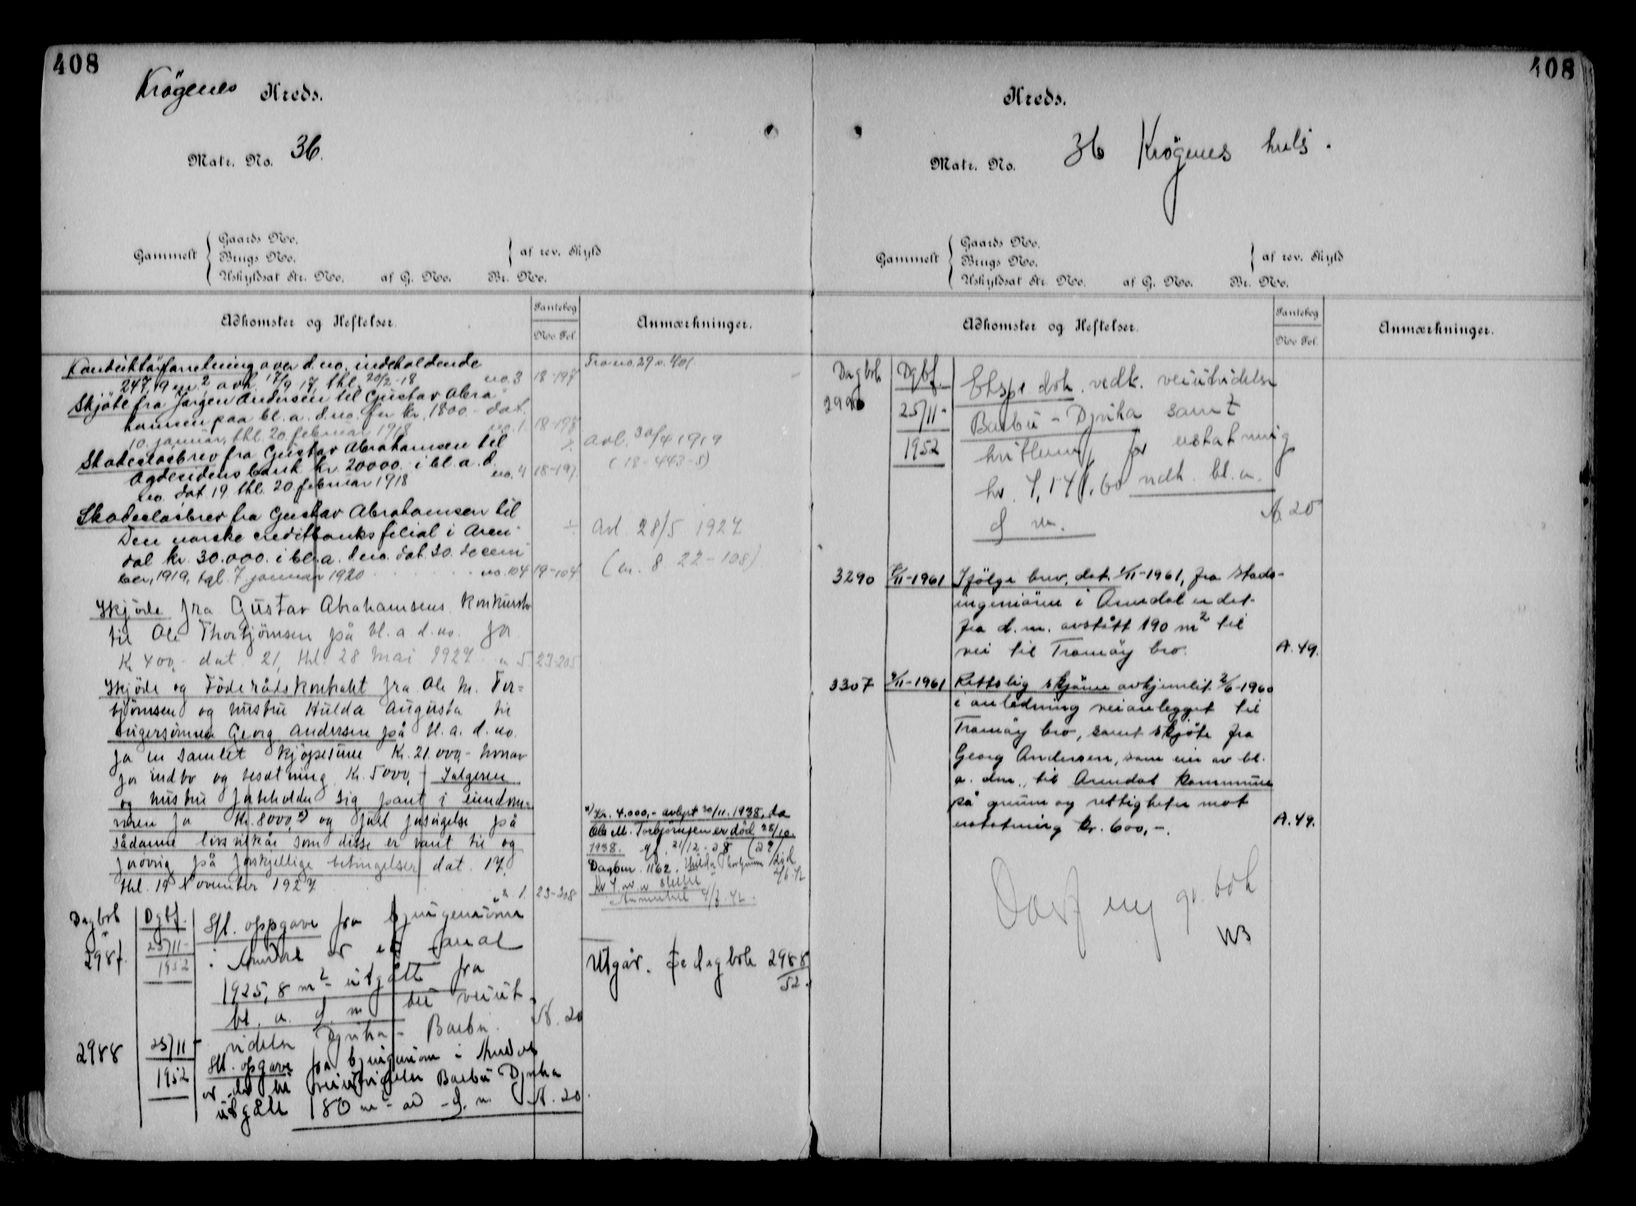 408
Krögenes Kreds.
Matr. No. 36.
Gammelt
Gaards No.
Brugs No.
Uskyldsat Str. No. af G. No. Br. No.
af rev. Skyld
Adkomster og Heftelser.
Pantebog
No Fol.
Anmærkninger.
Konduktörforretning over d.no. indeholdende
247,9 m² avh. 17/9 17, thl. 20/2-18 no. 3 18-197
Fra no. 29 a. 401.
Skjöte fra Jörgen Andersen til Gustav Abra
hamsen paa bl.a. d.no. for kr. 1800.- dat.
10. januar, thl. 20. februar 1918 no. 1 18-198
Skadeslösbrev fra Gustav Abrahamsen til
Agdesidens bank kr. 20000. i bl.a. d.
no. dat 19 thl. 20 februar 1918 no. 4 18-197
avl. 30/4 1919
(18-443-5)
Skadeslösbrev fra Gustav Abrahamsen til
Den norske creditbanks filial i Aren
dal kr. 30.000. i bl.a. d.no. dat. 30. decem
ber, 1919, tgl. 7 januar 1920 no. 104 19-104
Avl 28/5 1927
(22-108)
Skjöde fra Gustav Abrahamsens konkursbo
til Ole Thorbjörnsen på bl. a d. no. for
K 400,- dat 21, thl 28 mai 1927 n 5 23-205
Skjöde og Föderådskontrakt fra Ole M. Tor=
björnsen og hustru Hulda Augusta til
svigersönnen Georg Andersen på bl. a. d. no.
for en samlet kjöpesum Kr. 21.000,- hvorav
for indbo og besætning Kr. 5000,- Sælgeren
og hustru forbeholder sig pant i eiendom=
men for Kr. 8000,- x) og fuld forsörgelse på
sådanne livsvilkår som disse er vant til og
forövrig på forskjellige betingelser dat. 17,
thl. 19 November 1927. n. 1. 23-308
x) Kr. 4.000,- avlyst 20/11. 1938, da
Ole M. Torbjörnsen er död 28/10.
1938.
Dagbnr. 1162. Hulda Thorbjörnsen död
Dagbok
2987.
Dgbf.
25/11-
1952
Stl. oppgave fra bjingeniören
i Arendal er et areal
1925,8 m² utgått fra
bl. a. d. m til veiut-
videlse Djvika - Barbu. A. 20
Utgår. Se dagbok 2988
52.
2988
25/11 -
1952
Stl. opgave fra bjingeniören i Arendal
er det til veiutvidelse Barbu Djvika
utgått 180 m² av d. m A. 20.
408
Kreds.
Matr. No. 36 Krögenes
Gammelt
Gaards No.
Brugs No.
Uskyldsat Str. No. af G. No. Br. No.
af rev. Skyld
Adkomster og Heftelser.
Pantebog
No Fol.
Anmærkninger.
Dagbok
Dgbf.
25/11-
1952
Ekspr dok. vedk. veiutvidelse
Barbu - Djvika samt
kvittering for erstatning
vedk. bl. a.
d m. A. 20
3290 8/11-1961 Ifölge brev, dat. 1/11-1961, fra stads-
ingeniören i Arendal er det
fra d. m. avstått 190 m² til
vei til Tromöy bro. A. 49.
3307 9/11-1961 Rettslig skjönn avhjemlet 2/6-1960
i anledning veianlegget til
Tromöy bro, samt skjöte fra
Georg Andersen, som eier av bl.
a. dnr., til Arendal kommune
på grunn og rettigheter mot
erstatning kr. 600,-. A. 49.
Overf ny gr. bok